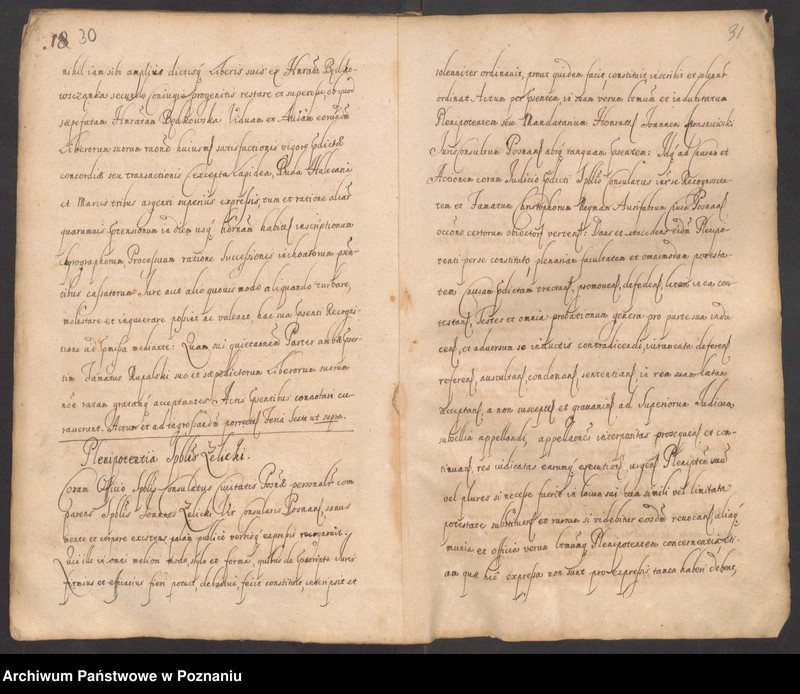 18 30
nihil iam sibi amplius dictisq Liberis suis ex Hnrata Bętko-
wsczanka secundo coniugio progenitis restare et superesse, ob quod
saepefatam Hnratam Bętkowska viduam et Auiam eorundm
Liberorum suorum raone huiusm satisfactionis vigore
concordiae seu transactionis excepta Lapidea,
et Marcis tribus argenti superius expressis, tum et ratione aliar
quarumuis in diem usq hornam habitas inscriptionum
chyrographorum, Processuum ratione Successionis inchoatorum
tibus cassatorum Jure aut alio quouis modo aliquando turbare,
molestare et inquietare possint ac valeant, hac sua Recogni-
tione ad mediante: Quam sui quietaonem Partes ambae
tim Famatus Rupalski suo et saepedictorum Liberorum suorum
noe ratam gratamq acceptantes Actis connotari cu-
rauerunt. Actum et ad ingrossandum porrectus Feria Sexta ut supra.
Plenipotentia Spblis Zelichi.
Coram Officio Spblis Consulatus ciuitatis Posnae personalr com
parens Spblis Joannes Zelicki Vir consularis Posnans, sanus
mente et corpore existens palam publice verbisq expressis
Quia ille in omni meliori modo, stylo et forma, quibus de Juris
firmius et efficatius fieri potuit, debuitue, fecit constituit, inscripsit et
31
solenniter ordinauit, prout quidem facit constituit inscribit et solenr
ordinat Actum per in suum verum ltmum et indubitatum
Plenipotentem seu Mandatarium Honorat Joannem
Jurisconsultum Posnan absq tanquam Idq ad causam et
Actionem coram Judicio Spblis Consulatus inter se Recognoscen-
tem et Famatum Christophorum Aurifabrum Posnans
occone certorum obiector vertens: Dans et concedens eidm Plenipo-
tenti per se constituto plenariam facultatem et omnimodam potesta-
tem causam tractans, promouens, defedens litem in ea con-
testans, Testes et omnia probationum genera pro parte sua indu
cens, et aduersum se inductis contradicendi, iuramenta deferens
referens, auscultans conclonans, sententians in rem suam latam
acceptans, a non suscepta et grauamins ad Superiorum Judicum
subsellia appellandi, appellaones interpositas prosequens et con-
tinuans, res iudicatas earumq executions urgens Plenipoten suum
vel plures si necesse fuerit in locum sui cum simili vel limitata
potestate substituens et rursum si videbitur eosdm reuocans aliaq
munia et officia verum ltmumq Plenipotentem concernentia eti-
am quae hic expressa non sunt pro expressis tamen haberi debent,
Archiwum Państwowe w Poznaniu